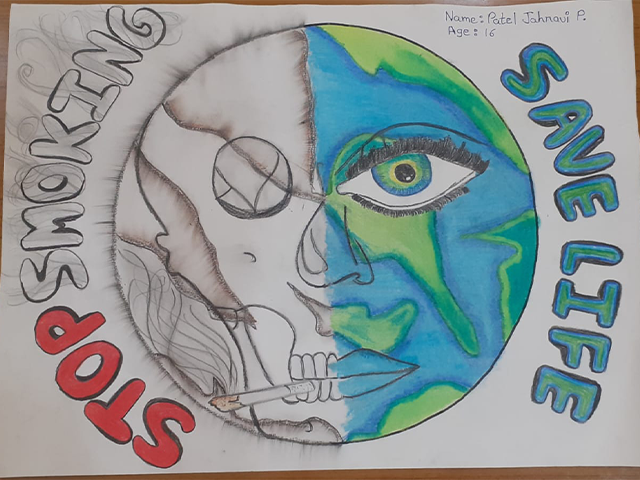 Name: Patel Jahnavi P.
Age: 16
STOP SMOKING
SAVE LIFE